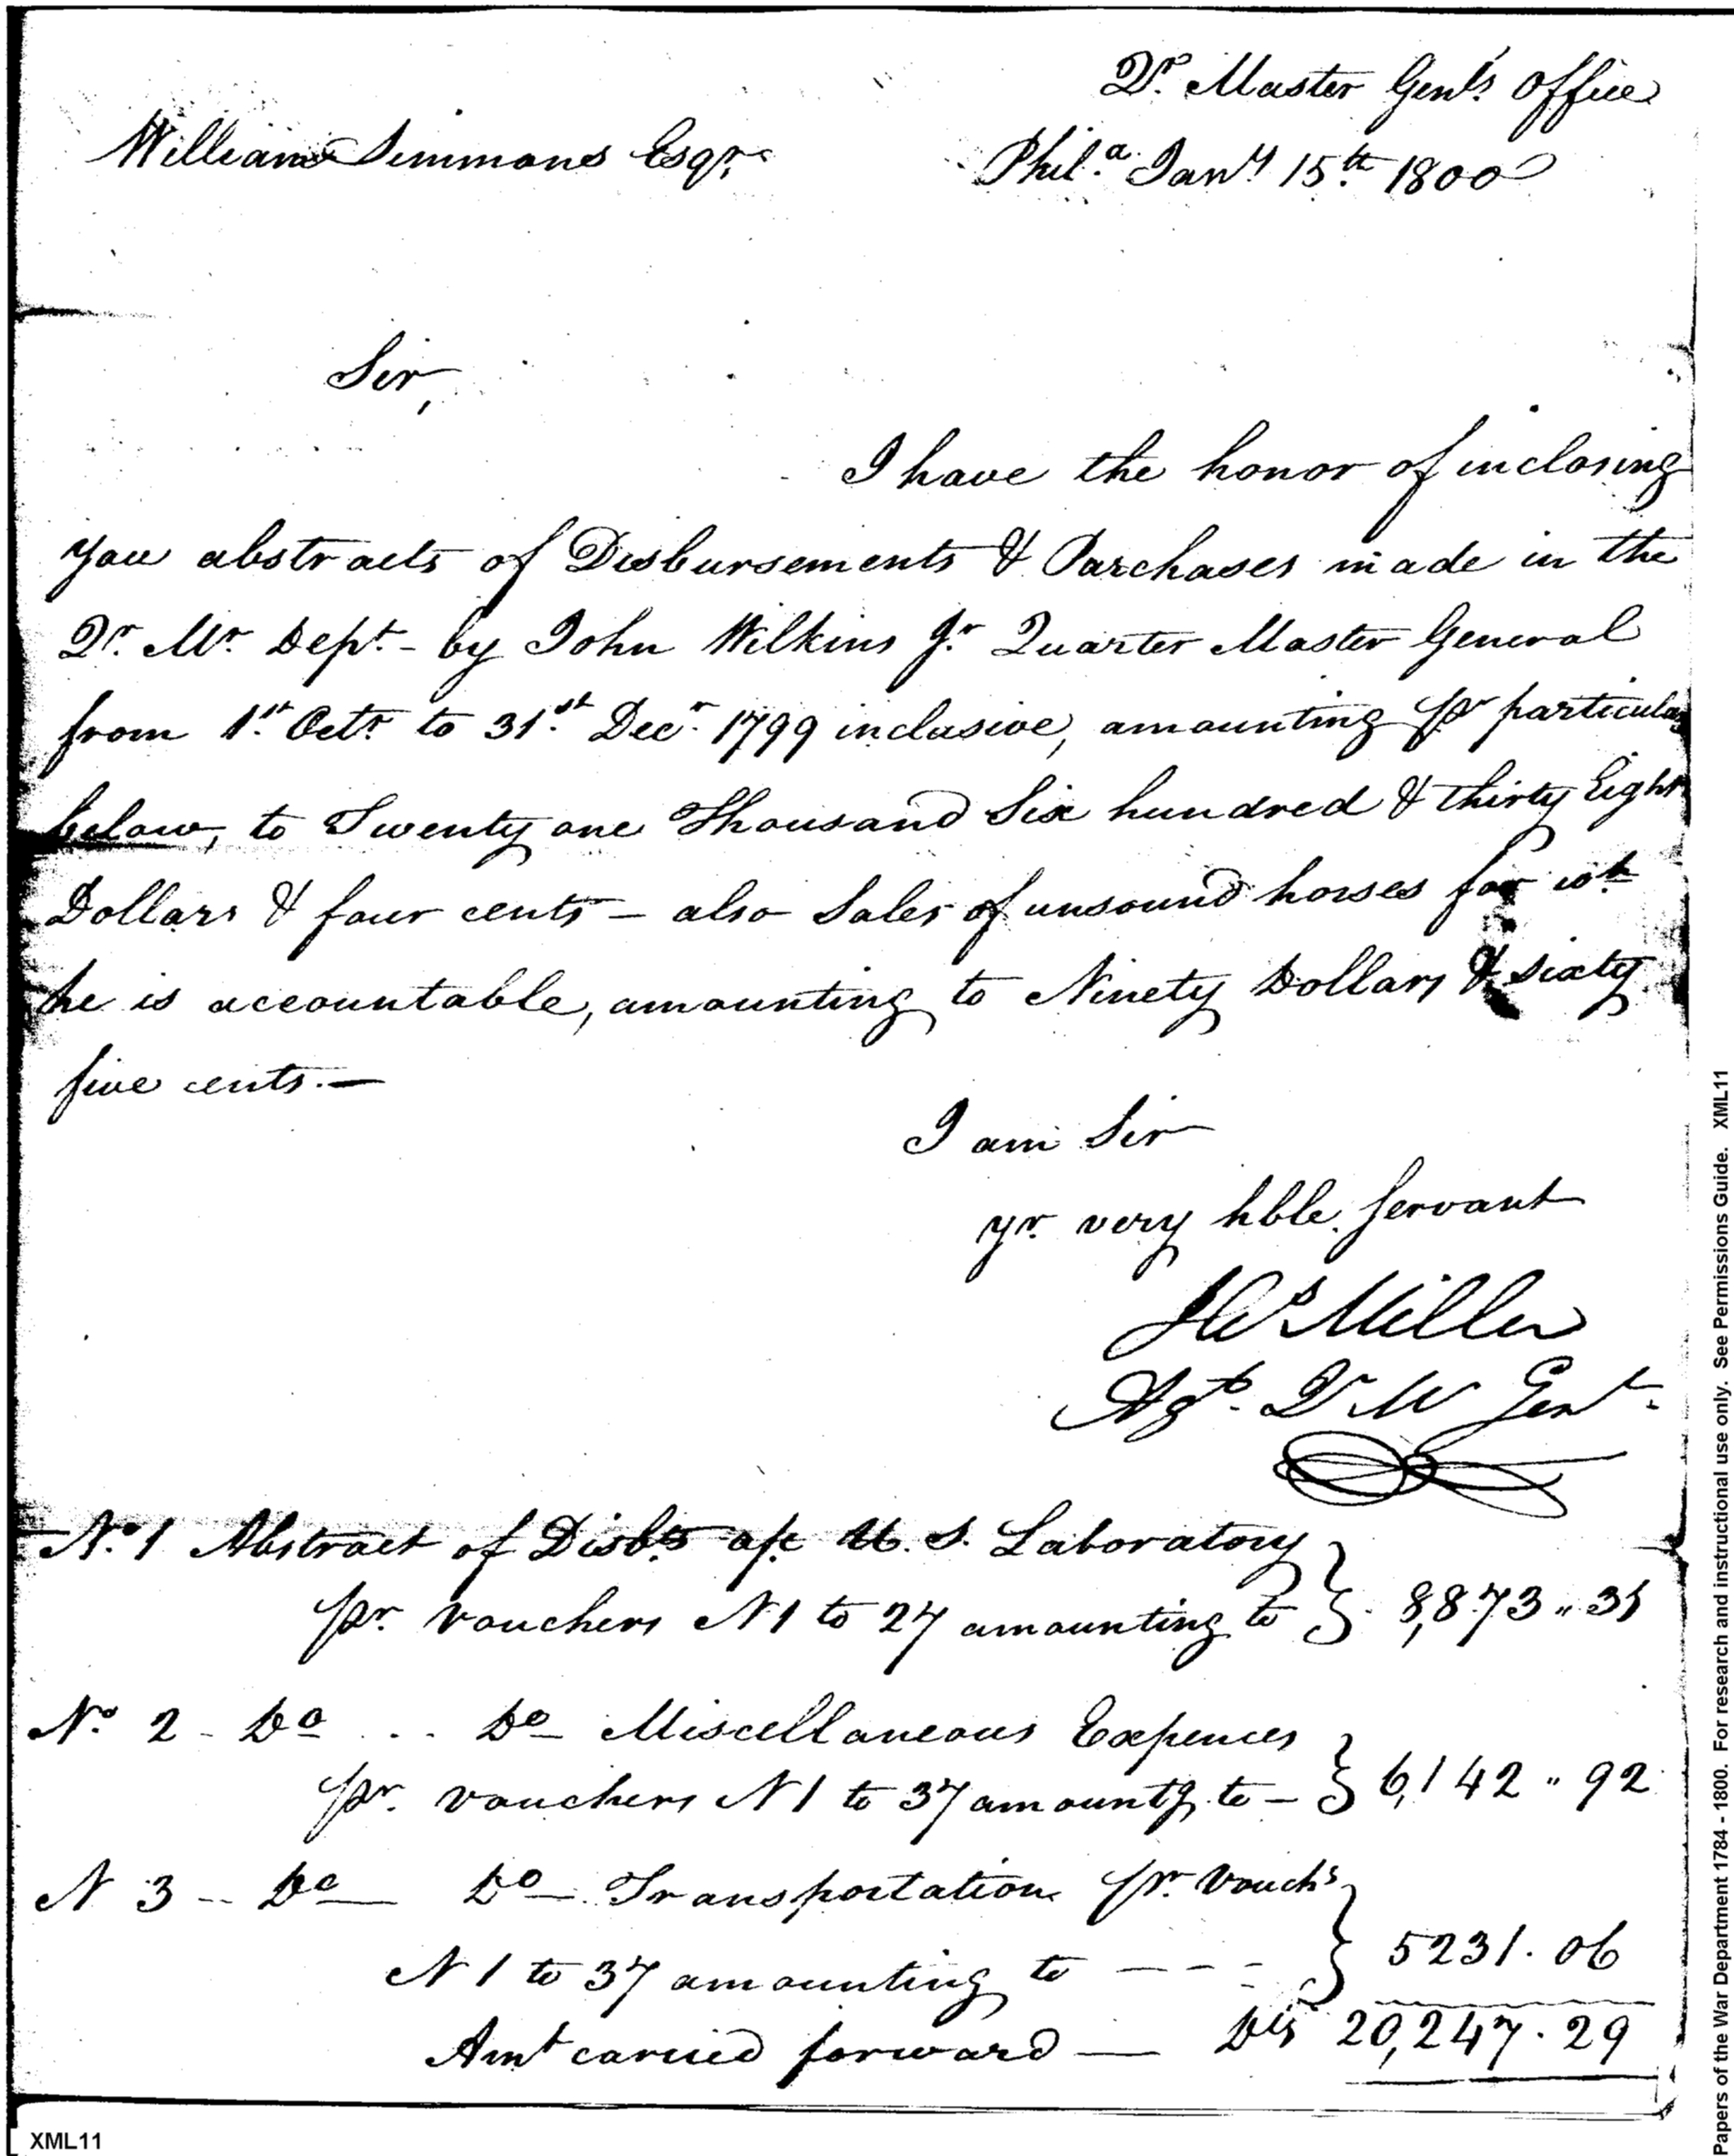 Qr. Master Genls. Office
William Simmons Esqr.
Phila. Jany 15th 1800
Sir,
I have the honor of inclosing
you abstracts of Disbursements & Purchases made in the
Qr. Mr. Dept. - by John Wilkins Jr. Quarter Master General
from 1st. Octr. to 31st. Decr. 1799 inclusive, amounting pr particulars
below, to Twenty one Thousand Six hundred & thirty Eight
Dollars & four cents - also Sales of unsound horses for wh
he is accountable, amounting to Ninety Dollars & sixty
five cents. -
I am Sir
yr. very hble. Servant
Miller
Agt. Q M Genl.
No. 1 Abstract of Disbts. a/c U. S. Laboratory
pr. vouchers N 1 to 27 amounting to } 8,873 " 31
No. 2 - Do .. Do Miscellaneous Expences
pr. vouchers N 1 to 37 amountg. to - } 6,142 " 92
N 3 -- Do Do Transportation pr. Vouchs
N 1 to 37 amounting to - - - } 5231. 06
Amt carried forward — Dls 20,247. 29
XML11
Papers of the War Department 1784 - 1800. For research and instructional use only. See Permissions Guide. XML11